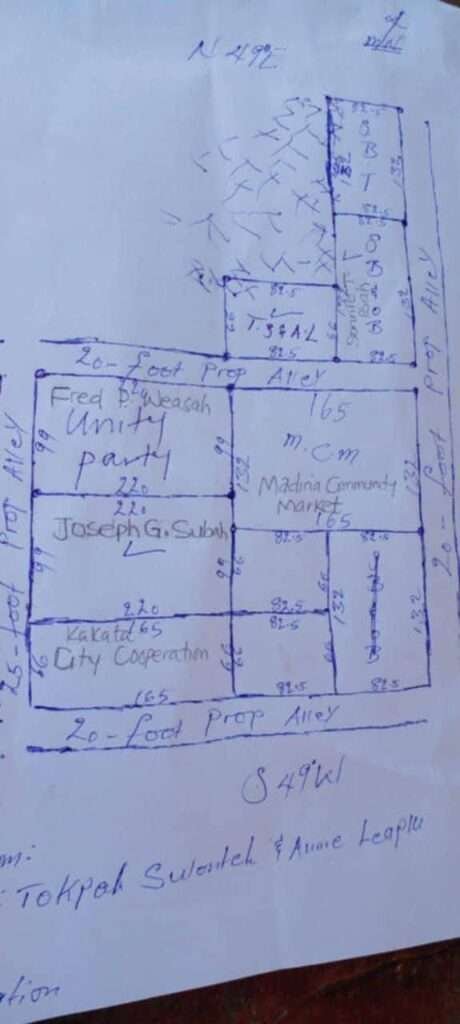 N 49°E
82.5
S
B
T
132
132
82.5
82.5
T. S & A. L
66
66
132
82.5
82.5
20-foot Prop Alley
20-foot Prop Alley
25-foot Prop Alley
Fred P. Weasah
Unity
party
99
99
132
220
165
M. C. M
Madina Community
Market
165
132
220
Joseph G. Subah
99
99
66
82.5
66
132
132
220
82.5
82.5
165
Kakata
City Cooperation
66
66
66
165
82.5
82.5
20-foot Prop Alley
S 49°W
om:
: Tokpah Sulonteh & Annie Leaplu
ation